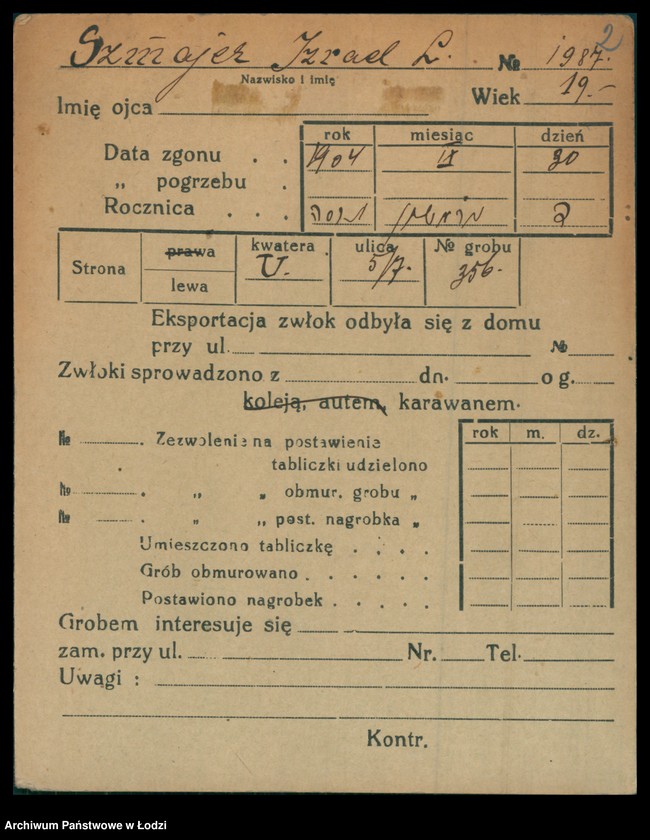 Szmajer Izrael L. № 1987. 2
Nazwisko i imię
Imię ojca Wiek 19.-
rok miesiąc dzień
Data zgonu . . 1904 IX 30
„ pogrzebu .
Rocznica . . .
Strona prawa kwatera ulica № grobu
lewa U. 5/7. 356.
Eksportacja zwłok odbyła się z domu
przy ul. №
Zwłoki sprowadzono z dn. o g.
koleją, autem, karawanem.
№ . Zezwolenie na postawienie rok m. dz.
tabliczki udzielono
№ . „ „ obmur. grobu „
№ . „ „ post. nagrobka „
Umieszczono tabliczkę . . . .
Grób obmurowano . . . . . .
Postawiono nagrobek . . . . .
Grobem interesuje się
zam. przy ul. Nr. Tel.
Uwagi :
Kontr.
Archiwum Państwowe w Łodzi